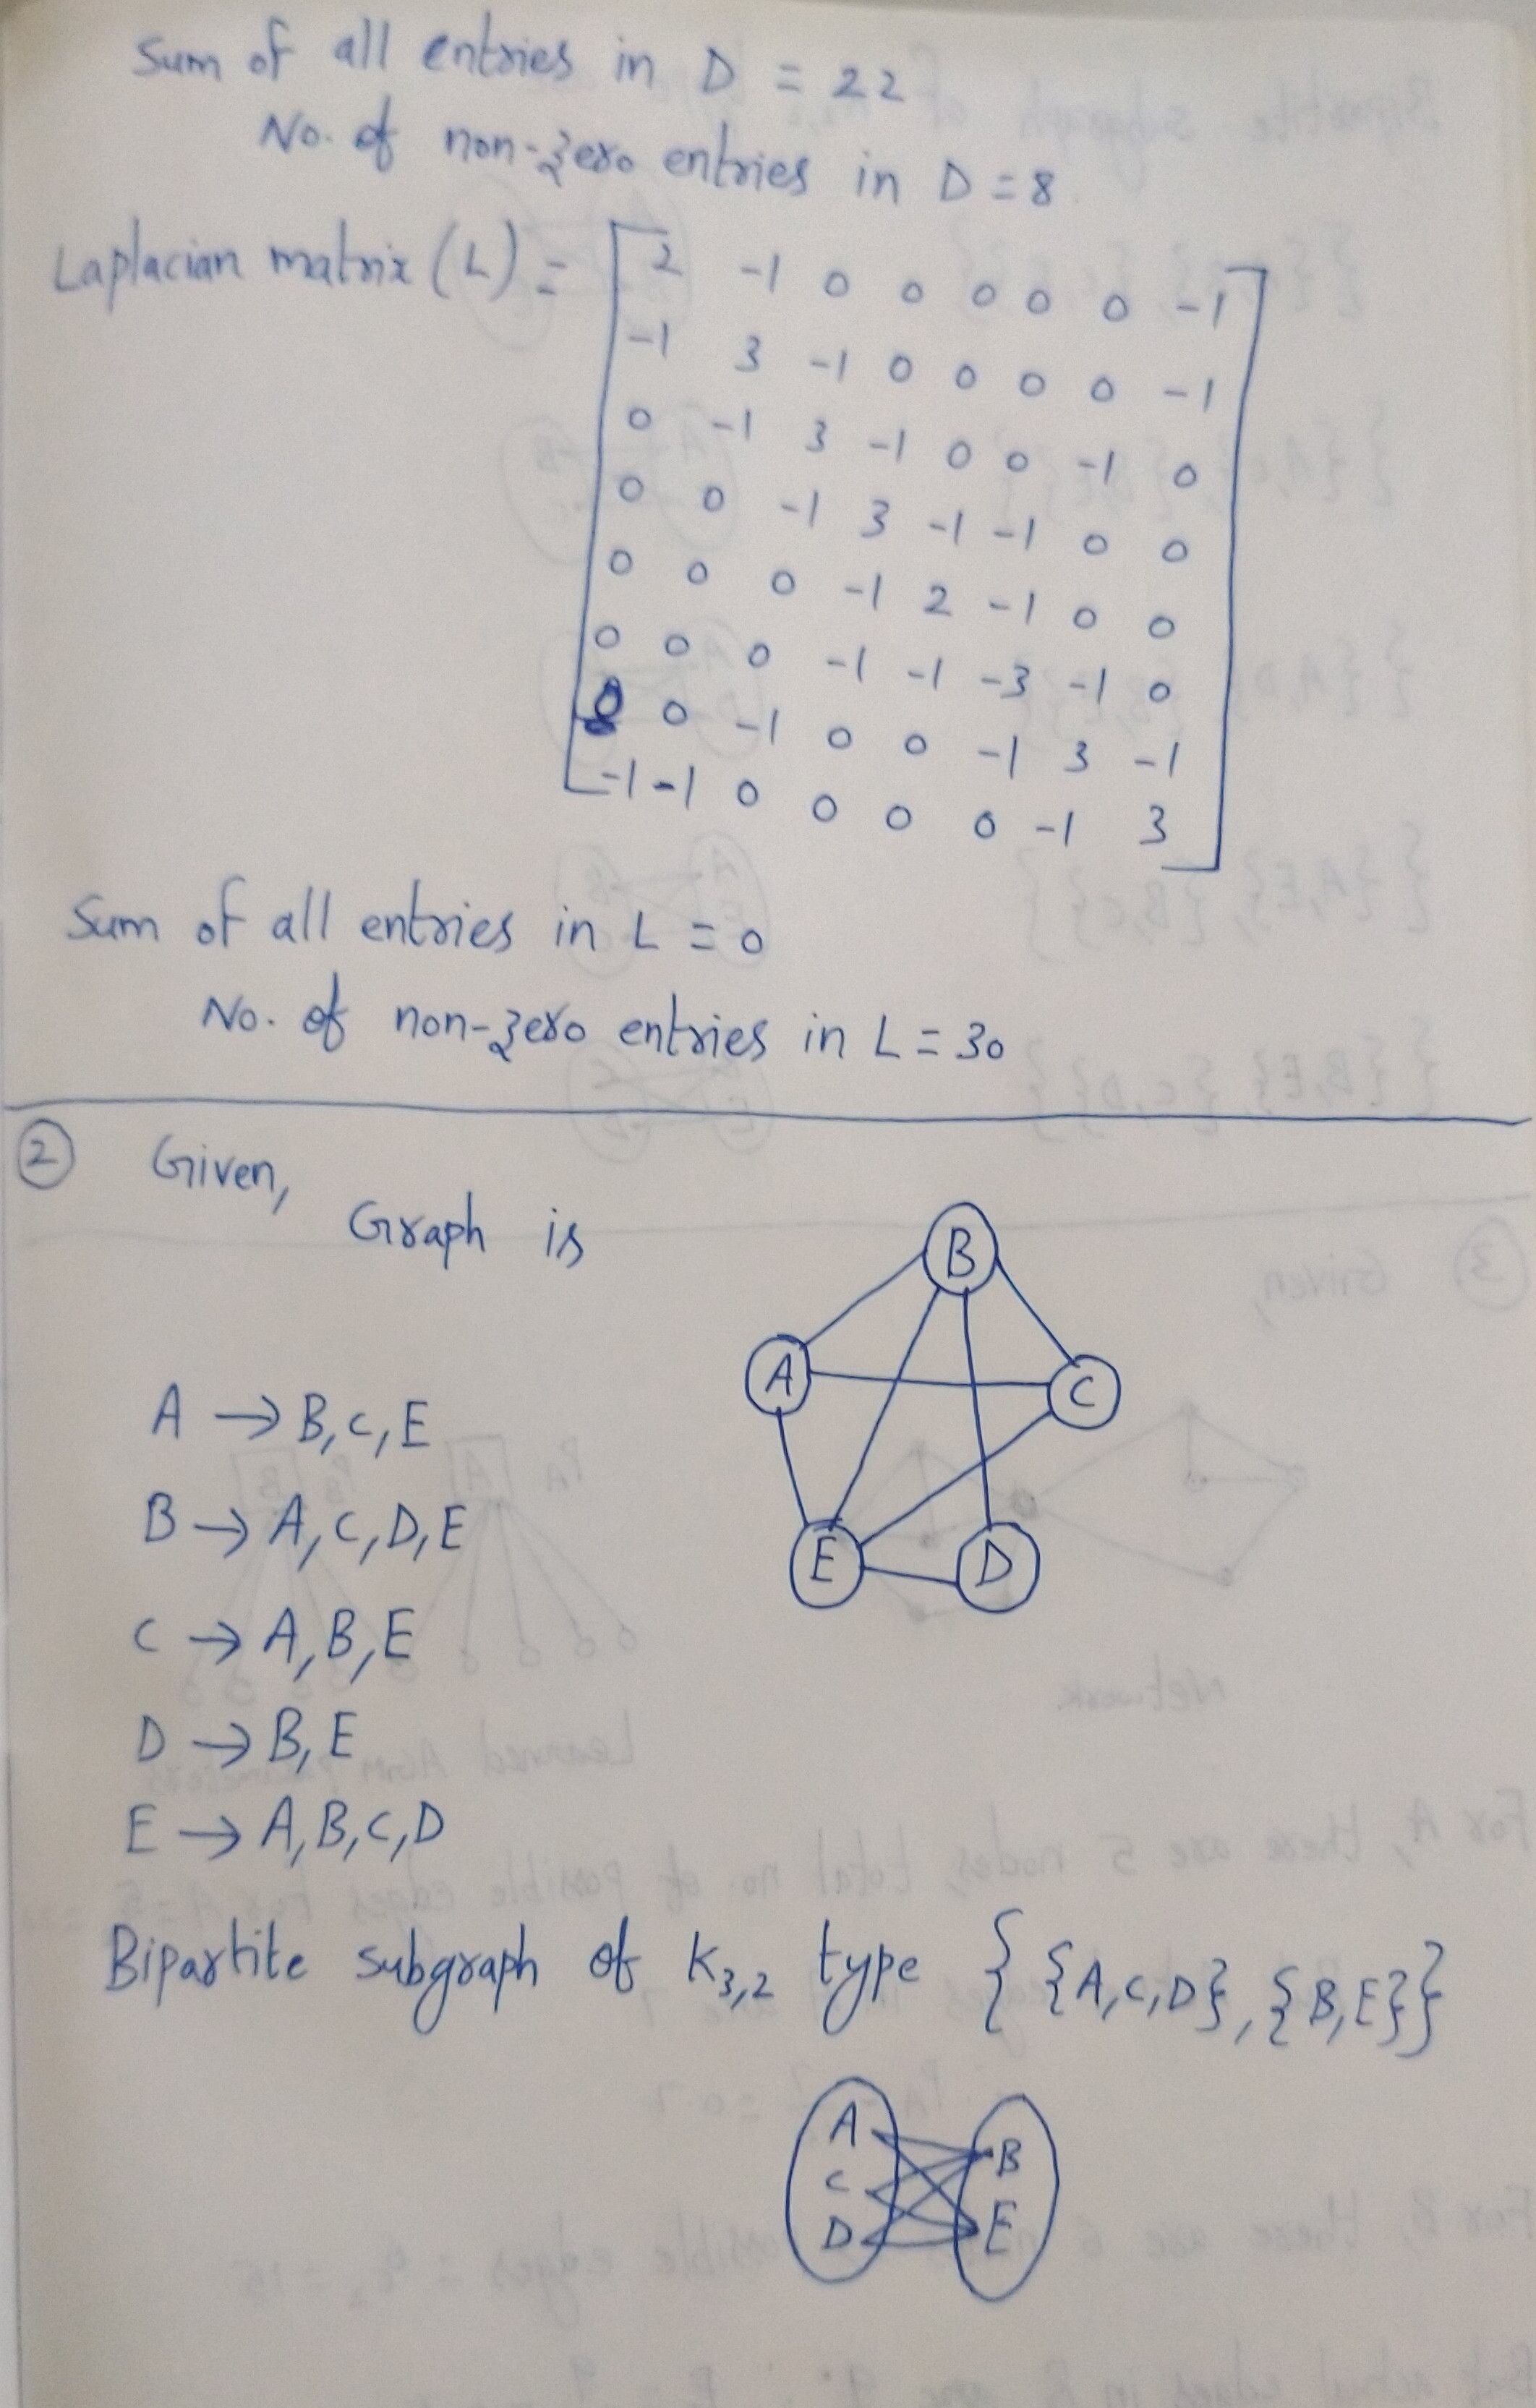 Sum of all entries in D = 22
No. of non-zero entries in D = 8
Laplacian matrix (L) =
2 -1 0 0 0 0 0 -1
-1 3 -1 0 0 0 0 -1
0 -1 3 -1 0 0 -1 0
0 0 -1 3 -1 -1 0 0
0 0 0 -1 2 -1 0 0
0 0 0 -1 -1 -3 -1 0
0 0 -1 0 0 -1 3 -1
-1 -1 0 0 0 0 -1 3
Sum of all entries in L = 0
No. of non-zero entries in L = 30
② Given,
Graph is
B
A
C
E
D
A → B, C, E
B → A, C, D, E
C → A, B, E
D → B, E
E → A, B, C, D
Bipartite subgraph of K3,2 type { {A, C, D}, {B, E}}
A
C
D
B
E